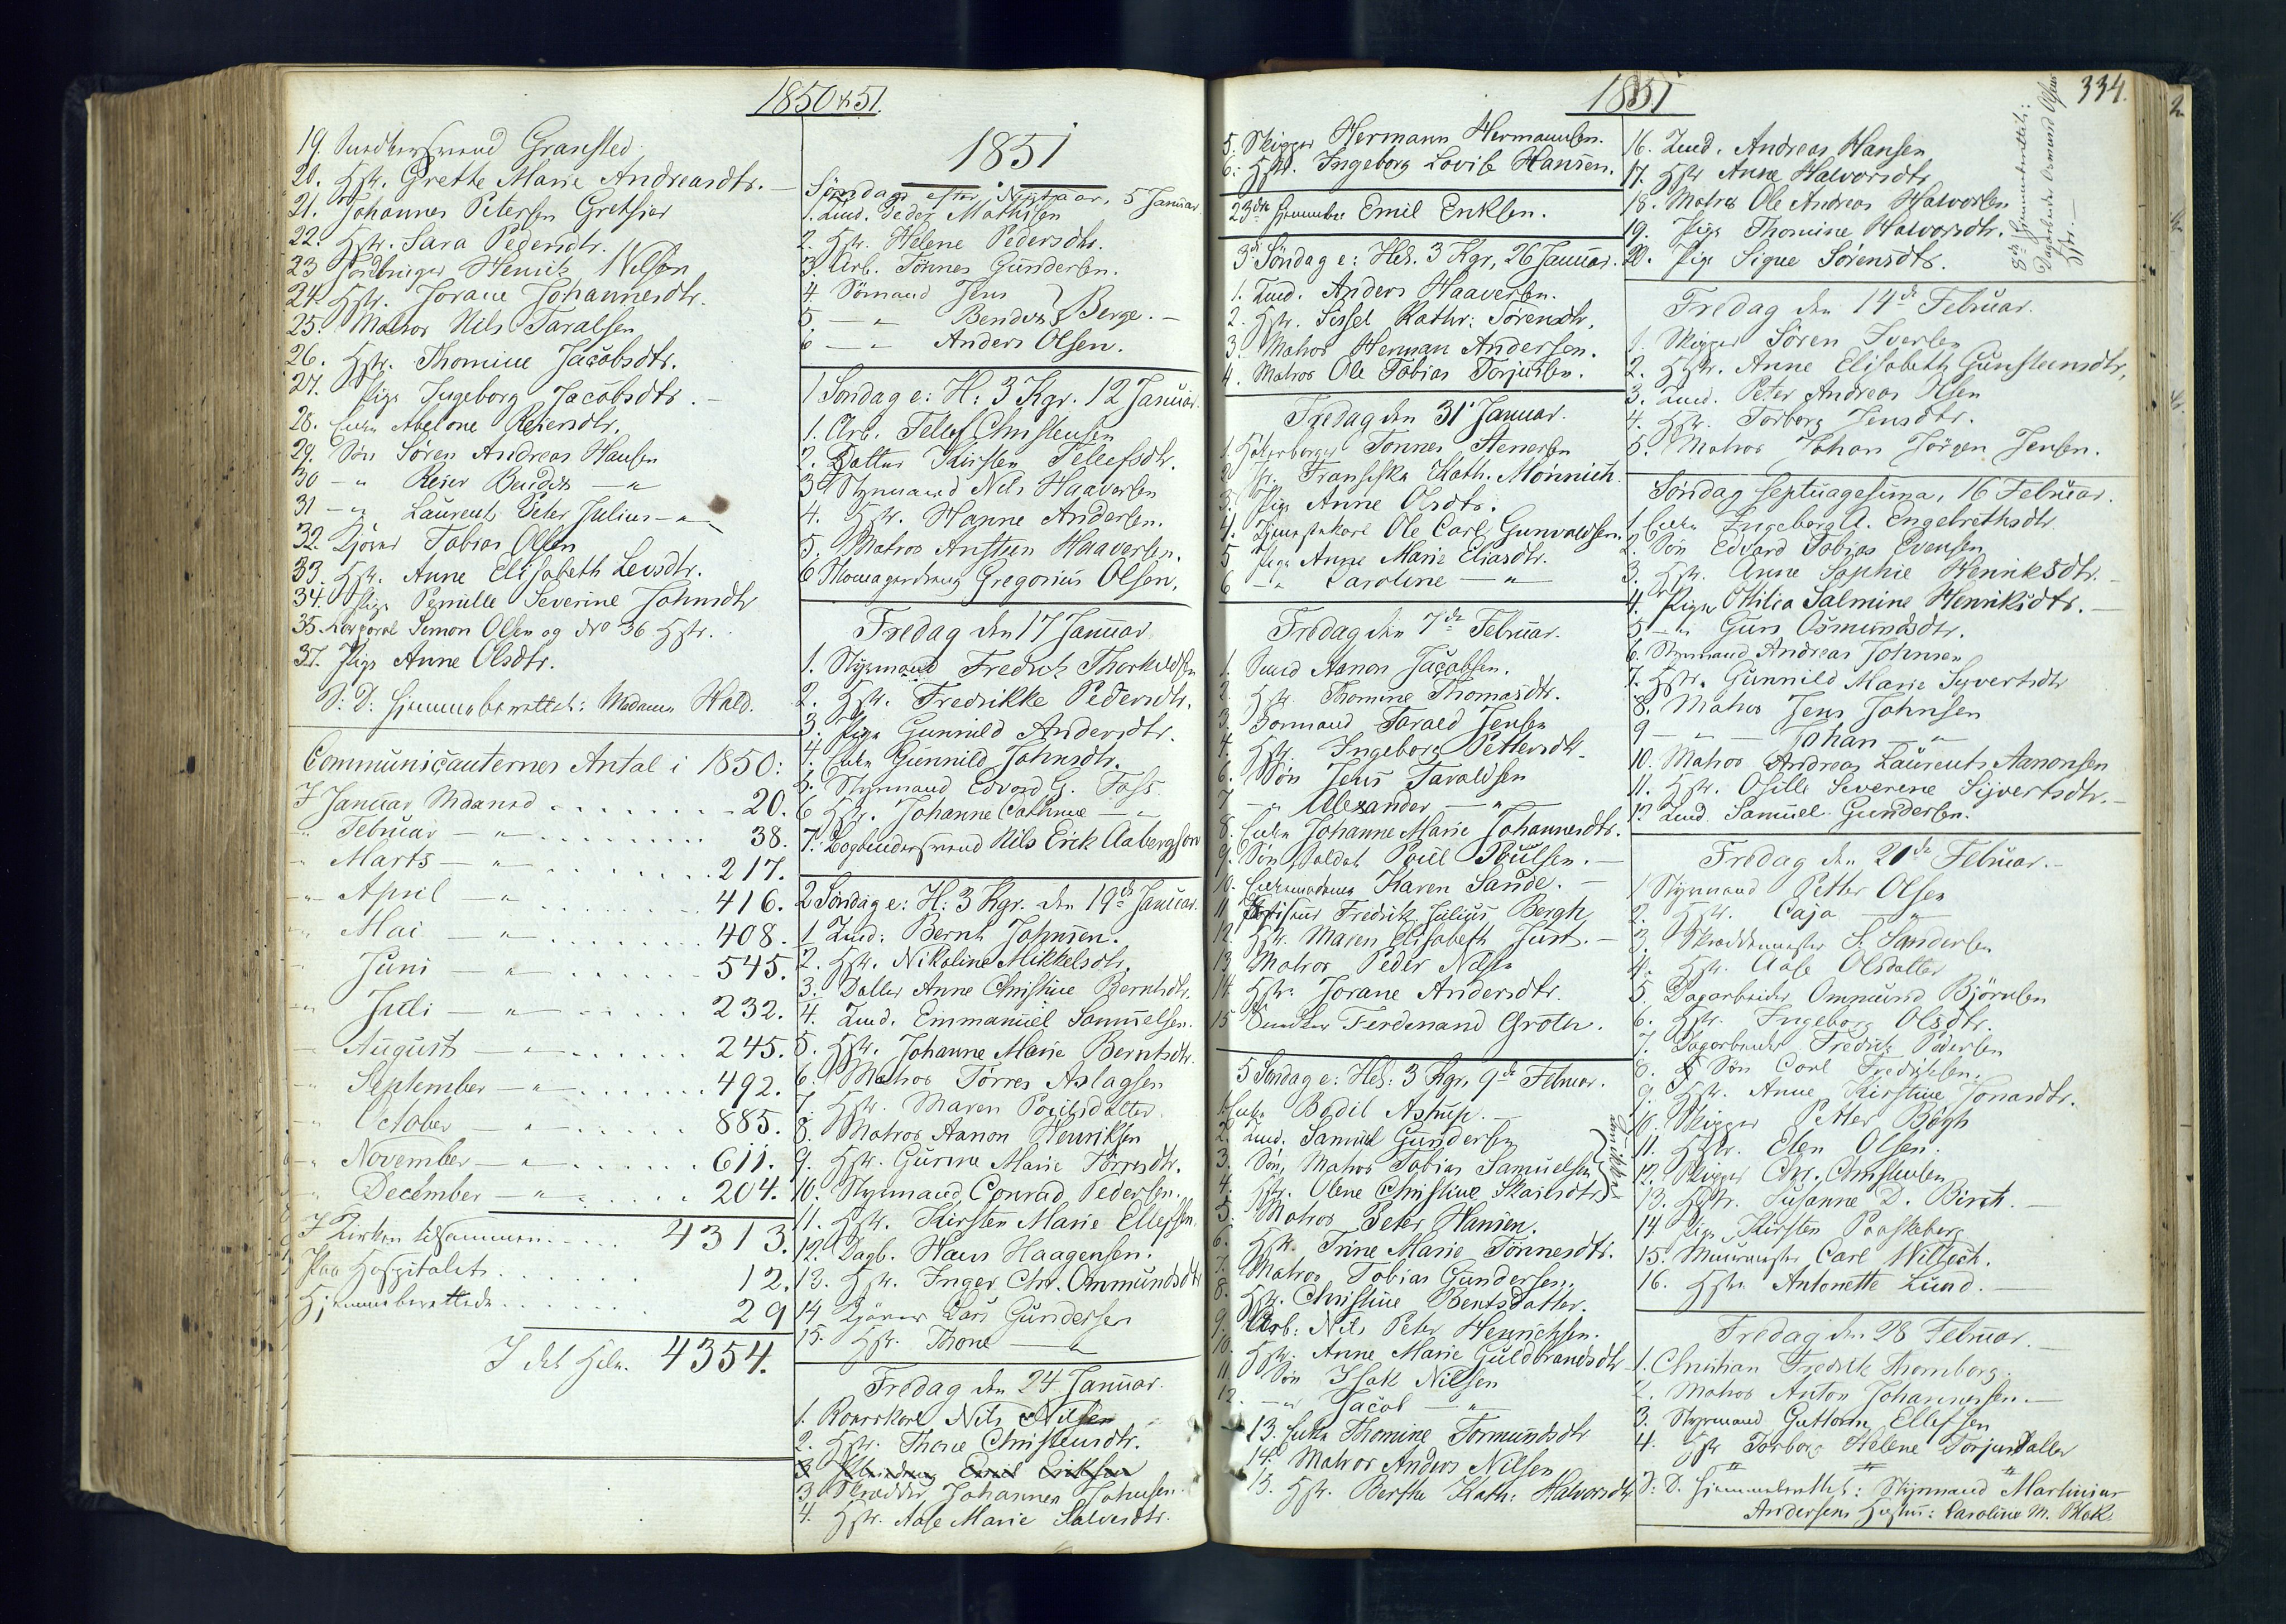 1850 & 51.
19. Snedkersvend Gransted
20. Hstr. Grethe Marie Andreasdtr.
21. Johannes Petersen Gretsier
22. Hstr. Sara Pedersdtr.
23 Nilsen
24. Hstr. Jorane Johannesdtr.
25. Matros Nils Taralsen
26. Hstr. Thomine Jacobsdtr.
27. Pige Ingeborg Jacobsdtr.
28. Enke Abelone Reiersdtr.
29. Søn Søren Andreas Hansen
30 - " Reier Bendix - "
31 - " Laurents Peter Julius - "
32. Kjører Tobias Olsen
33. Hstr. Anne Elisabeth Levsdtr.
34. Pige Pernille Severine Johnsdtr
35. Korporal Simon Olsen og No 36 Hstr.
37. Pige Anne Olsdtr.
S: D: hjemmeberettet: Madame Hald.
Communicanternes Antal i 1850:
I Januar Maaned 20.
" Februar - " 38.
- Marts - " 217.
- " April - " 416.
" Mai - " 408.
Juni - " 545.
- " Juli - " 232.
August - " 245.
- " September - " 492.
- " October - " 885.
- " November - " 611.
" December - " 204.
I Kirken tilsammen 4313.
Paa Hospitalet 12.
Hjemmeberettede 29
I det Hele 4354.
1851
Søndag efter Nytaar, 5 Januar
1. Lmd. Peder Mathisen
2. Hstr. Helene Pedersdtr.
3. Arb. Tönnes Gundersen.
4. Sömand Jens } Berge.
5 - " Bendix
6 - " Anders Olsen.
1 Søndag e: H: 3 Kgr. 12 Januar.
1. Arb. Tellef Christensen
2. Datter Kirsten Tellefsdtr.
3 Styrmand Nils Haaversen
4. Hstr. Hanne Andersen.
5. Matros Austen Haaversen.
6 Gregorius Olsen.
Fredag den 17 Januar
1. Styrmand Fredrik Thorkildsen
2. Hstr. Fredrikke Pedersdtr.
3. Pige Gunnild Andersdtr.
4. Enke Gunnild Johnsdtr.
5. Styrmand Edvard G. Foss
6 Hstr. Johanne Cathrine - "
7. Bogbindersvend Nils Erik Aabergson
2 Søndag e: H: 3 Kgr. den 19de Januar.
1 Lmd: Bernt Johnsen.
2. Hstr. Nikoline Mikkelsdtr.
3. Datter Anne Christine Berntsdtr.
4. Lmd. Emmanuel Samuelsen.
5. Hstr. Johanne Marie Berntsdtr.
6. Matros Törres Aslagsen
7. Hstr. Maren Poulsdatter
8. Matros Aanon Henriksen
9. Hstr. Gurine Marie Törresdtr.
10. Styrmand Conrad Pedersen.
11. Hstr. Kirsten Marie Ellefsen
12. Dagb. Hans Haagensen.
13. Hstr. Inger Chr. Ommundsdtr
14 Kjörer Lars Gundersen
15. Hstr. Thone - "
Fredag den 24 Januar.
1. Roerskarl Nils Nilsen
2. Hstr. Thone Christensdtr.
3 Emil Eriksen
3. Skrædder Johannes Johnsen.
4. Hstr. Aase Marie Salvesdtr.
1851
334.
5. Skipper Hermann Hermannsen.
6. Hstr. Ingeborg Lovise Hansen.
23de hjemmeber Emil Eriksen.
3de Søndag e: Hel. 3 Kgr, 26 Januar.
1. Lmd. Anders Haaversen.
2. Hstr. Sissel Kathr: Sörensdtr.
3. Matros Herman Andersen.
4. Matros Ole Tobias Torjusen.
Fredag den 31 Januar.
1. Tönnes
2. Fransiska Kath. Mönnich.
3. Pige Anne Olsdtr.
4. Tjenestekarl Ole Carl Gunvaldsen.
5 Pige Anne Marie Eliasdtr.
6 - " Caroline - "
Fredag den 7de Februar.
1. Smed Aanon Jacobsen.
2. Hstr. Thomine Thomasdtr.
3. Formand Tarald Jensen
4. Hstr. Ingeborg Pettersdtr.
6. Søn Jens Taraldsen
7 - " Alexander - "
8. Enke Johanne Marie Johannesdtr.
9. Søn Soldat Poul Poulsen.
10. Enkemadame Karen Sande.
11. Fredrik Julius Bergh
12. Hstr. Maren Elisabeth Just.
13 Matros Peder Nilsen
14 Hstr. Jorane Andersdtr.
15 Snedker Ferdinand Groth.
5 Søndag e: Hel: 3 Kgr, 9de Februar.
1. Enke Bodil Astrup.
2. Lmd. Samuel Gundersen
3. Søn, Matros Tobias Samuelsen
4. Hstr. Olene Christine
5. Matros Peter Hansen.
6. Hstr. Trine Marie Tönnesdtr.
7. Matros Tobias Gundersen.
8. Hstr. Christine Bentsdatter.
9. Arb: Nils Peter Henrichsen.
10. Hstr. Anne Marie Guldbrandsdtr
11 Søn Isak Nilsen
12. - " Jacob - "
13. Enke Thomine Tormundsdtr
14. Matros Anders Nilsen
15. Hstr. Berthe Kath: Halvorsdtr
16. Lmd. Andreas Hansen
17. Hstr Anne Halvorsdtr
18. Matros Ole Andreas Halvorsen
19. Pige Thomine Halvorsdtr.
20. Pige Signe Sörensdtr.
8de hjemmeberettet:
Dagarbeider Osmund Olsens
Hstr.
Fredag den 14de Februar.
1. Skipper Sören Iversen
2. Hstr. Anne Elisabeth Gunsteinsdtr.
3. Lmd. Peter Andreas Olsen
4. Hstr. Torborg Jensdtr.
5. Matros Johan Jörgen Jensen.
Søndag Septuagesima, 16 Februar.
1. Enke Ingeborg A. Engebrethsdtr
2. Søn Edvard Tobias Evensen
3. Hstr. Anne Sophie Henriksdtr.
4. Pige Ottilia Salmine Henriksdtr.
5 - " Guri Osmundsdtr.
6. Styrmand Andreas Johnsen
7. Hstr. Gunnild Marie Syvertsdtr
8. Matros Jens Johnsen
9 - " - Johan - "
10. Matros Andreas Laurents Aanonsen
11. Hstr. Osille Severine Sijvertsdtr.
12 Lmd. Samuel Gundersen.
Fredag den 21de Februar.
1 Styrmand Petter Olsen
2. Hstr. Caja - "
3. Skræddermester S. Sandersen
4. Hstr. Aase Olsdatter
5. Dagarbeider Ommund Björnsen
6. Hstr. Ingeborg Olsdtr.
7. Dagarbeider Fredrik Pedersen
8. Søn Carl Fredriksen.
9. Hstr. Anne Kirstine Jonasdtr.
10. Skipper Petter Bögh
11. Hstr. Elen Olsen.
12. Skipper Chr. Christensen
13. Hstr. Susanne D. Birch.
14. Pige Kirsten
15. Muurmester Carl Willoch.
16. Hstr. Antonette Lund.
Fredag den 28 Februar.
1. Christian Fredrik Thornborg
2. Matros Anton Johannessen.
3. Styrmand Guttorm Ellefsen
4. Hstr Torborg Helene Torjusdatter
S: D. hjemmeberettet: Styrmand Martinius
Andersens Hustru: Caroline M. Blok.